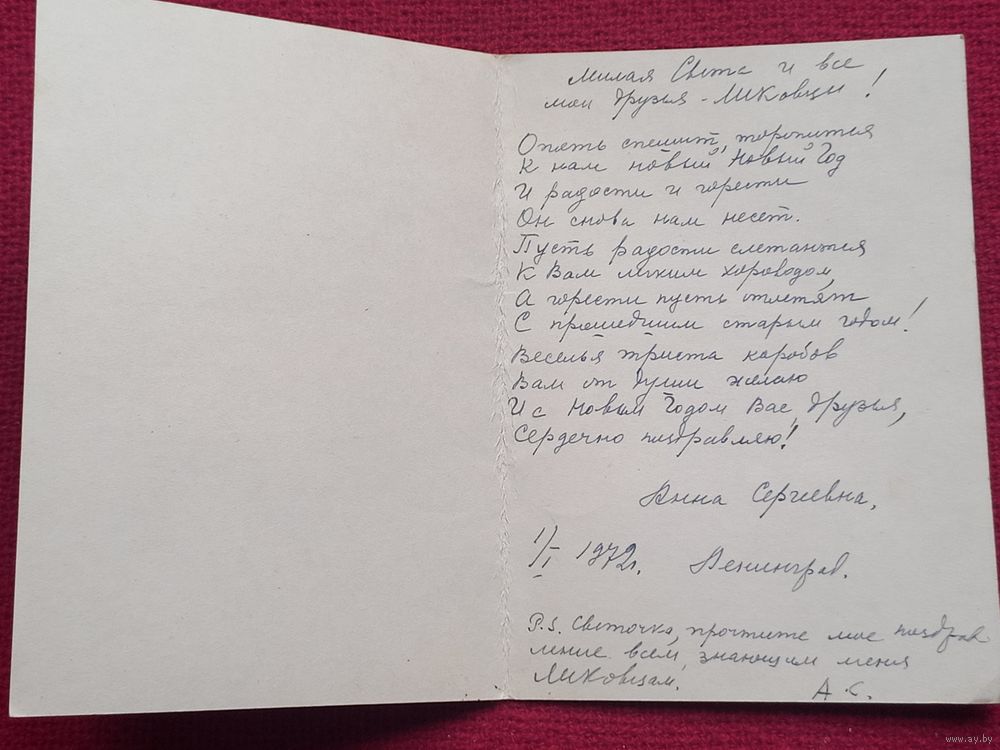 Милая Света и все
мои друзья - ЛИКовцы!
Опять спешит, торопится
К нам новый Новый Год
И радости и горести
Он снова нам несет.
Пусть радости слетаются
К Вам лихим хороводом,
А горести пусть отлетят
С прошедшим старым годом!
Веселья триста коробов
Вам от души желаю
И с Новым Годом Вас, друзья,
Сердечно поздравляю!
Анна Сергеевна,
1/I 1972г. Ленинград.
P.S. Светочка, прочтите мое поздрав
ление всем, знающим меня
ЛИКовцам.
А.С.
www.ay.by